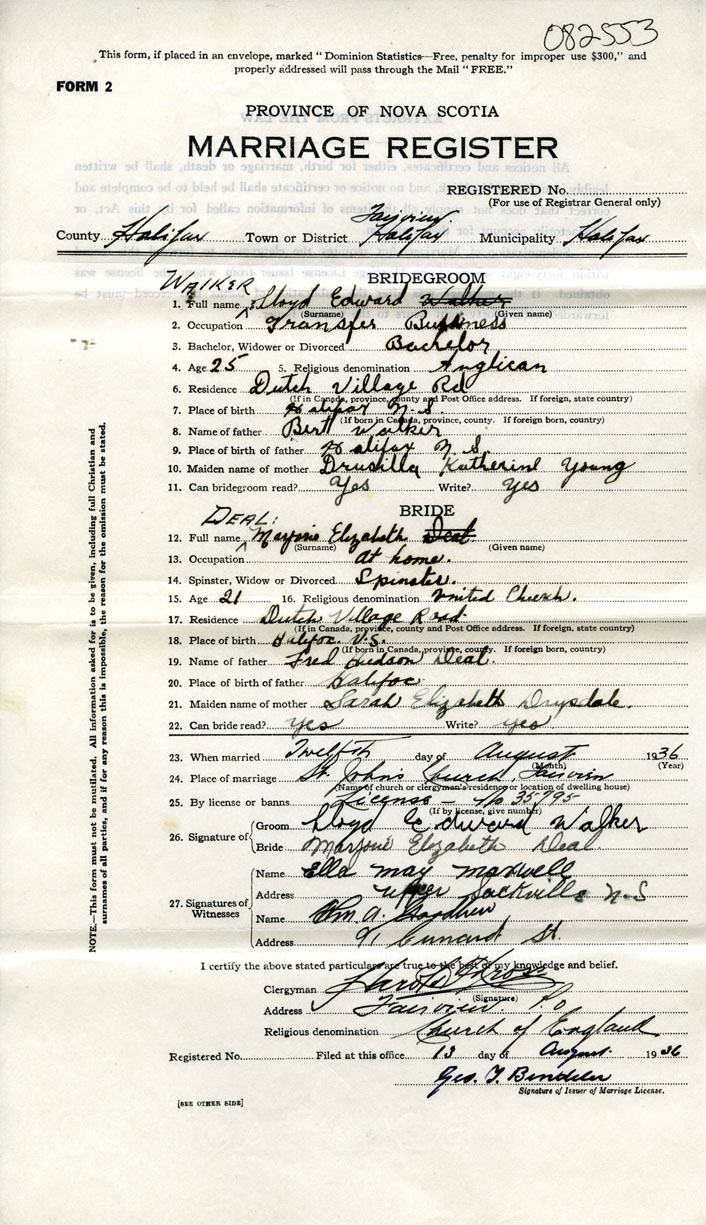 082553
This form, if placed in an envelope, marked "Dominion Statistics—Free, penalty for improper use $300," and
properly addressed will pass through the Mail "FREE."
FORM 2
PROVINCE OF NOVA SCOTIA
MARRIAGE REGISTER
REGISTERED No.
(For use of Registrar General only)
Fairview
County Halifax Town or District Halifax Municipality Halifax
WALKER BRIDEGROOM
1. Full name Lloyd Edward Walker
(Surname) (Given name)
2. Occupation Transfer Business
3. Bachelor, Widower or Divorced Bachelor
4. Age 25 5. Religious denomination Anglican
6. Residence Dutch Village Rd
(If in Canada, province, county and Post Office address. If foreign, state country)
7. Place of birth Halifax N.S.
(If born in Canada, province, county. If foreign born, country)
8. Name of father Bert Walker
9. Place of birth of father Halifax N.S.
10. Maiden name of mother Drusilla Katherine Young
11. Can bridegroom read? Yes Write? Yes
DEAL: BRIDE
12. Full name Marjorie Elizabeth Deal
(Surname) (Given name)
13. Occupation at home.
14. Spinster, Widow or Divorced Spinster.
15. Age 21 16. Religious denomination United Church.
17. Residence Dutch Village Road
(If in Canada, province, county and Post Office address. If foreign, state country)
18. Place of birth Halifax. N.S.
(If born in Canada, province, county. If foreign born, country)
19. Name of father Fred Judson Deal.
20. Place of birth of father Halifax
21. Maiden name of mother Sarah Elizabeth Drysdale.
22. Can bride read? yes Write? yes
23. When married Twelfth day of August 1936
(Month) (Year)
24. Place of marriage St. John's Church, Fairview
(Name of church or clergyman's residence or location of dwelling house)
25. By license or banns License — No 35795
(If by license, give number)
26. Signature of Groom Lloyd Edward Walker
Bride Marjorie Elizabeth Deal
27. Signatures of Witnesses Name Ella May Maxwell
Address Upper Sackville N.S
Name Wm. A.
Address 91 Cunard St.
I certify the above stated particulars are true to the best of my knowledge and belief.
Clergyman Harold
(Signature)
Address Fairview P.O
Religious denomination Church of England
Registered No. Filed at this office 13 day of August 1936
Geo. T.
Signature of Issuer of Marriage License.
[SEE OTHER SIDE]
NOTE.—This form must not be mutilated. All information asked for is to be given, including full Christian and
surnames of all parties, and if for any reason this is impossible, the reason for the omission must be stated.